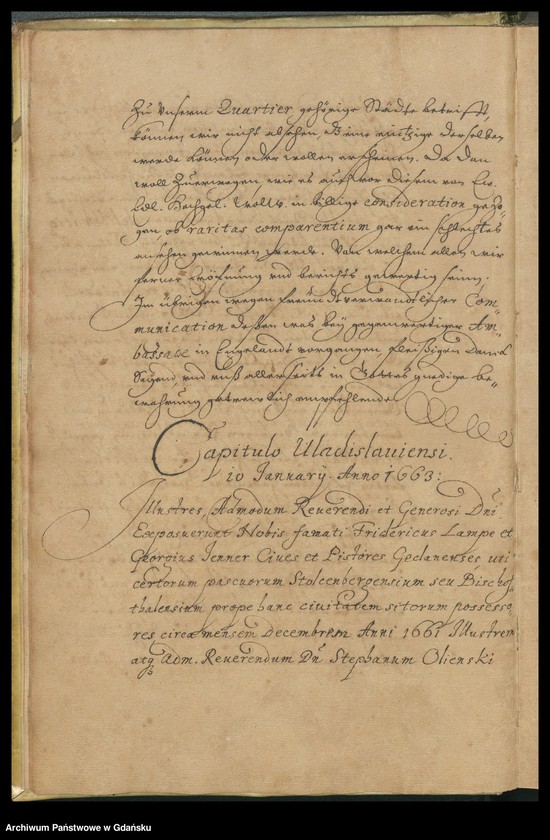 Zu Unserm Quartier gehörige Städte betrifft,
können wir nicht absehen, deren einzige derselben
werde können oder wollen erscheinen. Da dan
woll Zuerwegen, wie es auch vor diesem von Ew.
Edl. Hochgel. Wollw. in billige consideration gezo-
gen ob raritas comparentium gar ein schlechtes
ansehen gewinnen werde. Von welchem allen wir
ferner Eröffnung und berichts gewertig seint.
Im übrigen wegen freündtverwandtlicher Com-
munication deßen was bey gegenwertiger Am-
bassade in Engelandt vorgangen fleißigen Danck
Sagend, und unß allerseits in Gottes gnedige be-
wahrung getrewlich empfehlende
Capitulo Uladislaviensi.
10 January. Anno 1663:
Illustres, Admodum Reverendi et Generosi Dni
Exposuerunt Nobis famati Fridericus Lampe et
Georgius Jenner Cives et Pistores Gedanenses, uti
certorum pascuorum Stolcenbergensium seu Bischof-
thalensium prope hanc civitatem sitorum possesso-
res circa mensem Decembrem Anni 1661 Illustrem
atq Adm. Reverendum Dn Stephanum Olienski
Archiwum Państwowe w Gdańsku